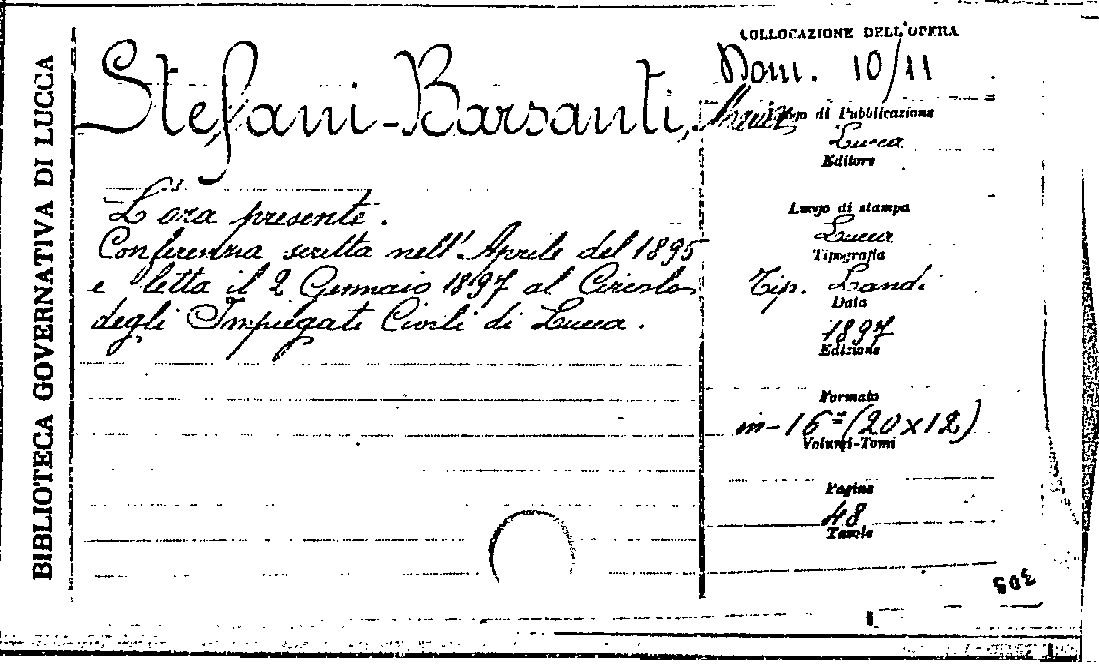 BIBLIOTECA GOVERNATIVA DI LUCCA
Stefani-Barsanti,
L'ora presente.
Conferenza scritta nell'Aprile del 1895
e letta il 2 Gennaio 1897 al Circolo
degli Impiegati Civili di Lucca.
COLLOCAZIONE DELL'OPERA
Dom. 10/11
Luogo di Pubblicazione
Lucca
Editore
Luogo di stampa
Lucca
Tipografia
Tip. Landi
Data
1897
Edizione
Formato
in-16º (20x12)
Volumi-Tomi
Pagine
48
Tavole
305